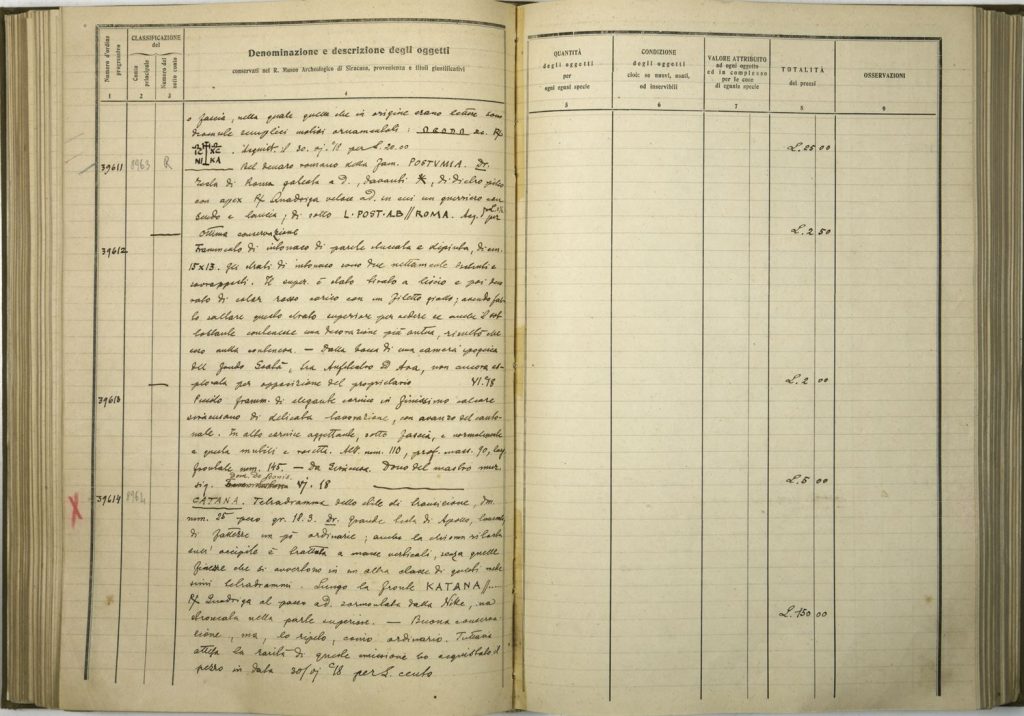 Numero d'ordine progressivo
CLASSIFICAZIONE del
Conto principale
Numero del sotto conto
Denominazione e descrizione degli oggetti
conservati nel R. Museo Archeologico di Siracusa, provenienza e titoli giustificativi
1 2 3 4
o fascia, nella quale quelle che in origine erano lettere sono
semplici motivi ornamentali :
IC XC
NI KA
Acquist. il 30. vj. '18 per L. 20.00
39611 8963 R Bel denaro romano della fam. POSTVMIA. Dr.
Testa di Roma galeata a d., davanti X, di dietro
con apex R/ Quadriga veloce a d. in cui un guerriero con
scudo e lancia; di sotto L·POST·ALB // ROMA. Acq. per
Ottima conservazione
39612 Frammento di intonaco di parete stuccata e dipinta, di cm.
15x13. Gli strati di intonaco sono due nettamente distinti e
sovrapposti. Il super. è stato tirato a liscio e poi deco
rato di color rosso carico con un filetto giallo; avendo fat
to saltare questo strato superiore per vedere se anche il sot
tostante contenesse una decorazione più antica, risultò che
esso nulla conteneva. — Dalla bocca di una camera ipogeica
del fondo , tra Anfiteatro ed Ara, non ancora es
plorata per opposizione del proprietario VI. '18
39613 Piccolo framm. di elegante cornice in finissimo calcare
siracusano di delicata lavorazione, con avanzo del
In alto cornice aggettante, sotto fascia, e normalmente
a questa e rosetta. Alt. mm. 110, prof. mass. 90, lung.
frontale mm. 145. — Da Siracusa. Dono del mastro mur.
sig. Dom. De Bonis. Vj. 18
39614 8964 CATANA. Tetradramma dello stile di transizione, dm.
mm. 25 peso gr. 18.3. Dr. Grande testa di Apollo, laureata,
di fattezze un pò ordinarie; anche la chioma rilevata
sull' occipite è trattata a masse verticali, senza quelle
finezze che si avvertono in un altra classe di questi mede
simi tetradrammi. Lungo la fronte KATANA //
R/ Quadriga al passo a d. sormontata dalla Nike, ma
troncata nella parte superiore. — Buona conserva-
zione, ma, lo ripeto, conio ordinario. Tuttavia
attesa la rarità di questa emissione ho acquistato il
pezzo in data 30/vj '18 per L. cento
QUANTITÀ degli oggetti per ogni egual specie
CONDIZIONE degli oggetti cioè: se nuovi, usati, od inservibili
VALORE ATTRIBUITO ad ogni oggetto ed in complesso per le cose di eguale specie
TOTALITÀ dei prezzi
OSSERVAZIONI
5 6 7 8 9
L. 25 00
L. 2 50
L. 2 00
L. 5 00
L. 150 00